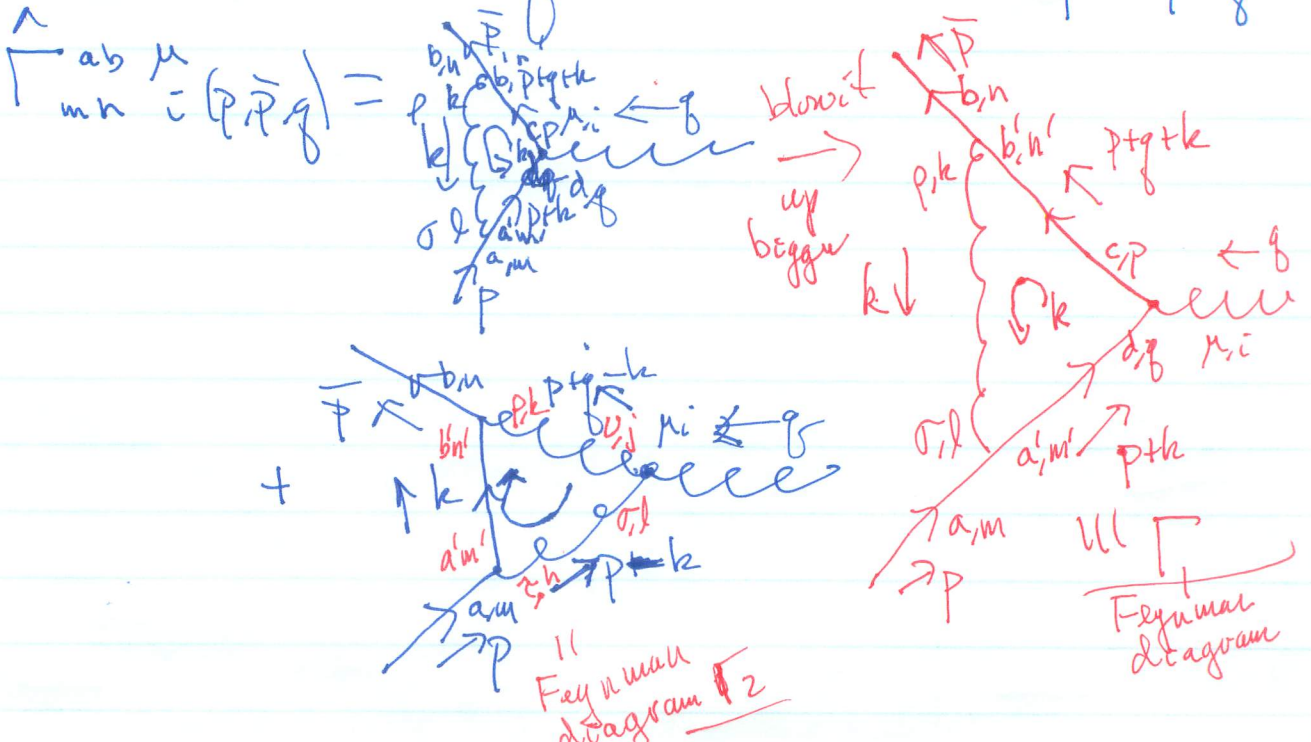 Γ̂ ab μ
mn i (p, p̄, q) =
b,n p̄
b, p+q+k
ρ k c,p μ,i ← q
k ↓ k
d,q
σ l a'm' p+k
a,m
p
blow it
→
up
bigger
p̄
b,n
b',n' p+q+k
ρ,k
c,p ← q
k ↓ k
d,q μ,i
σ,l a',m' p+k
a,m
p
≡ Γ
Feynman
diagram
+
p̄ b,n p+q-k
ρ,k ν,j μ i ← q
b'n'
k
σ,l
a'm'
τ,h p-k
a,m
p
=
Feynman
diagram Γ2